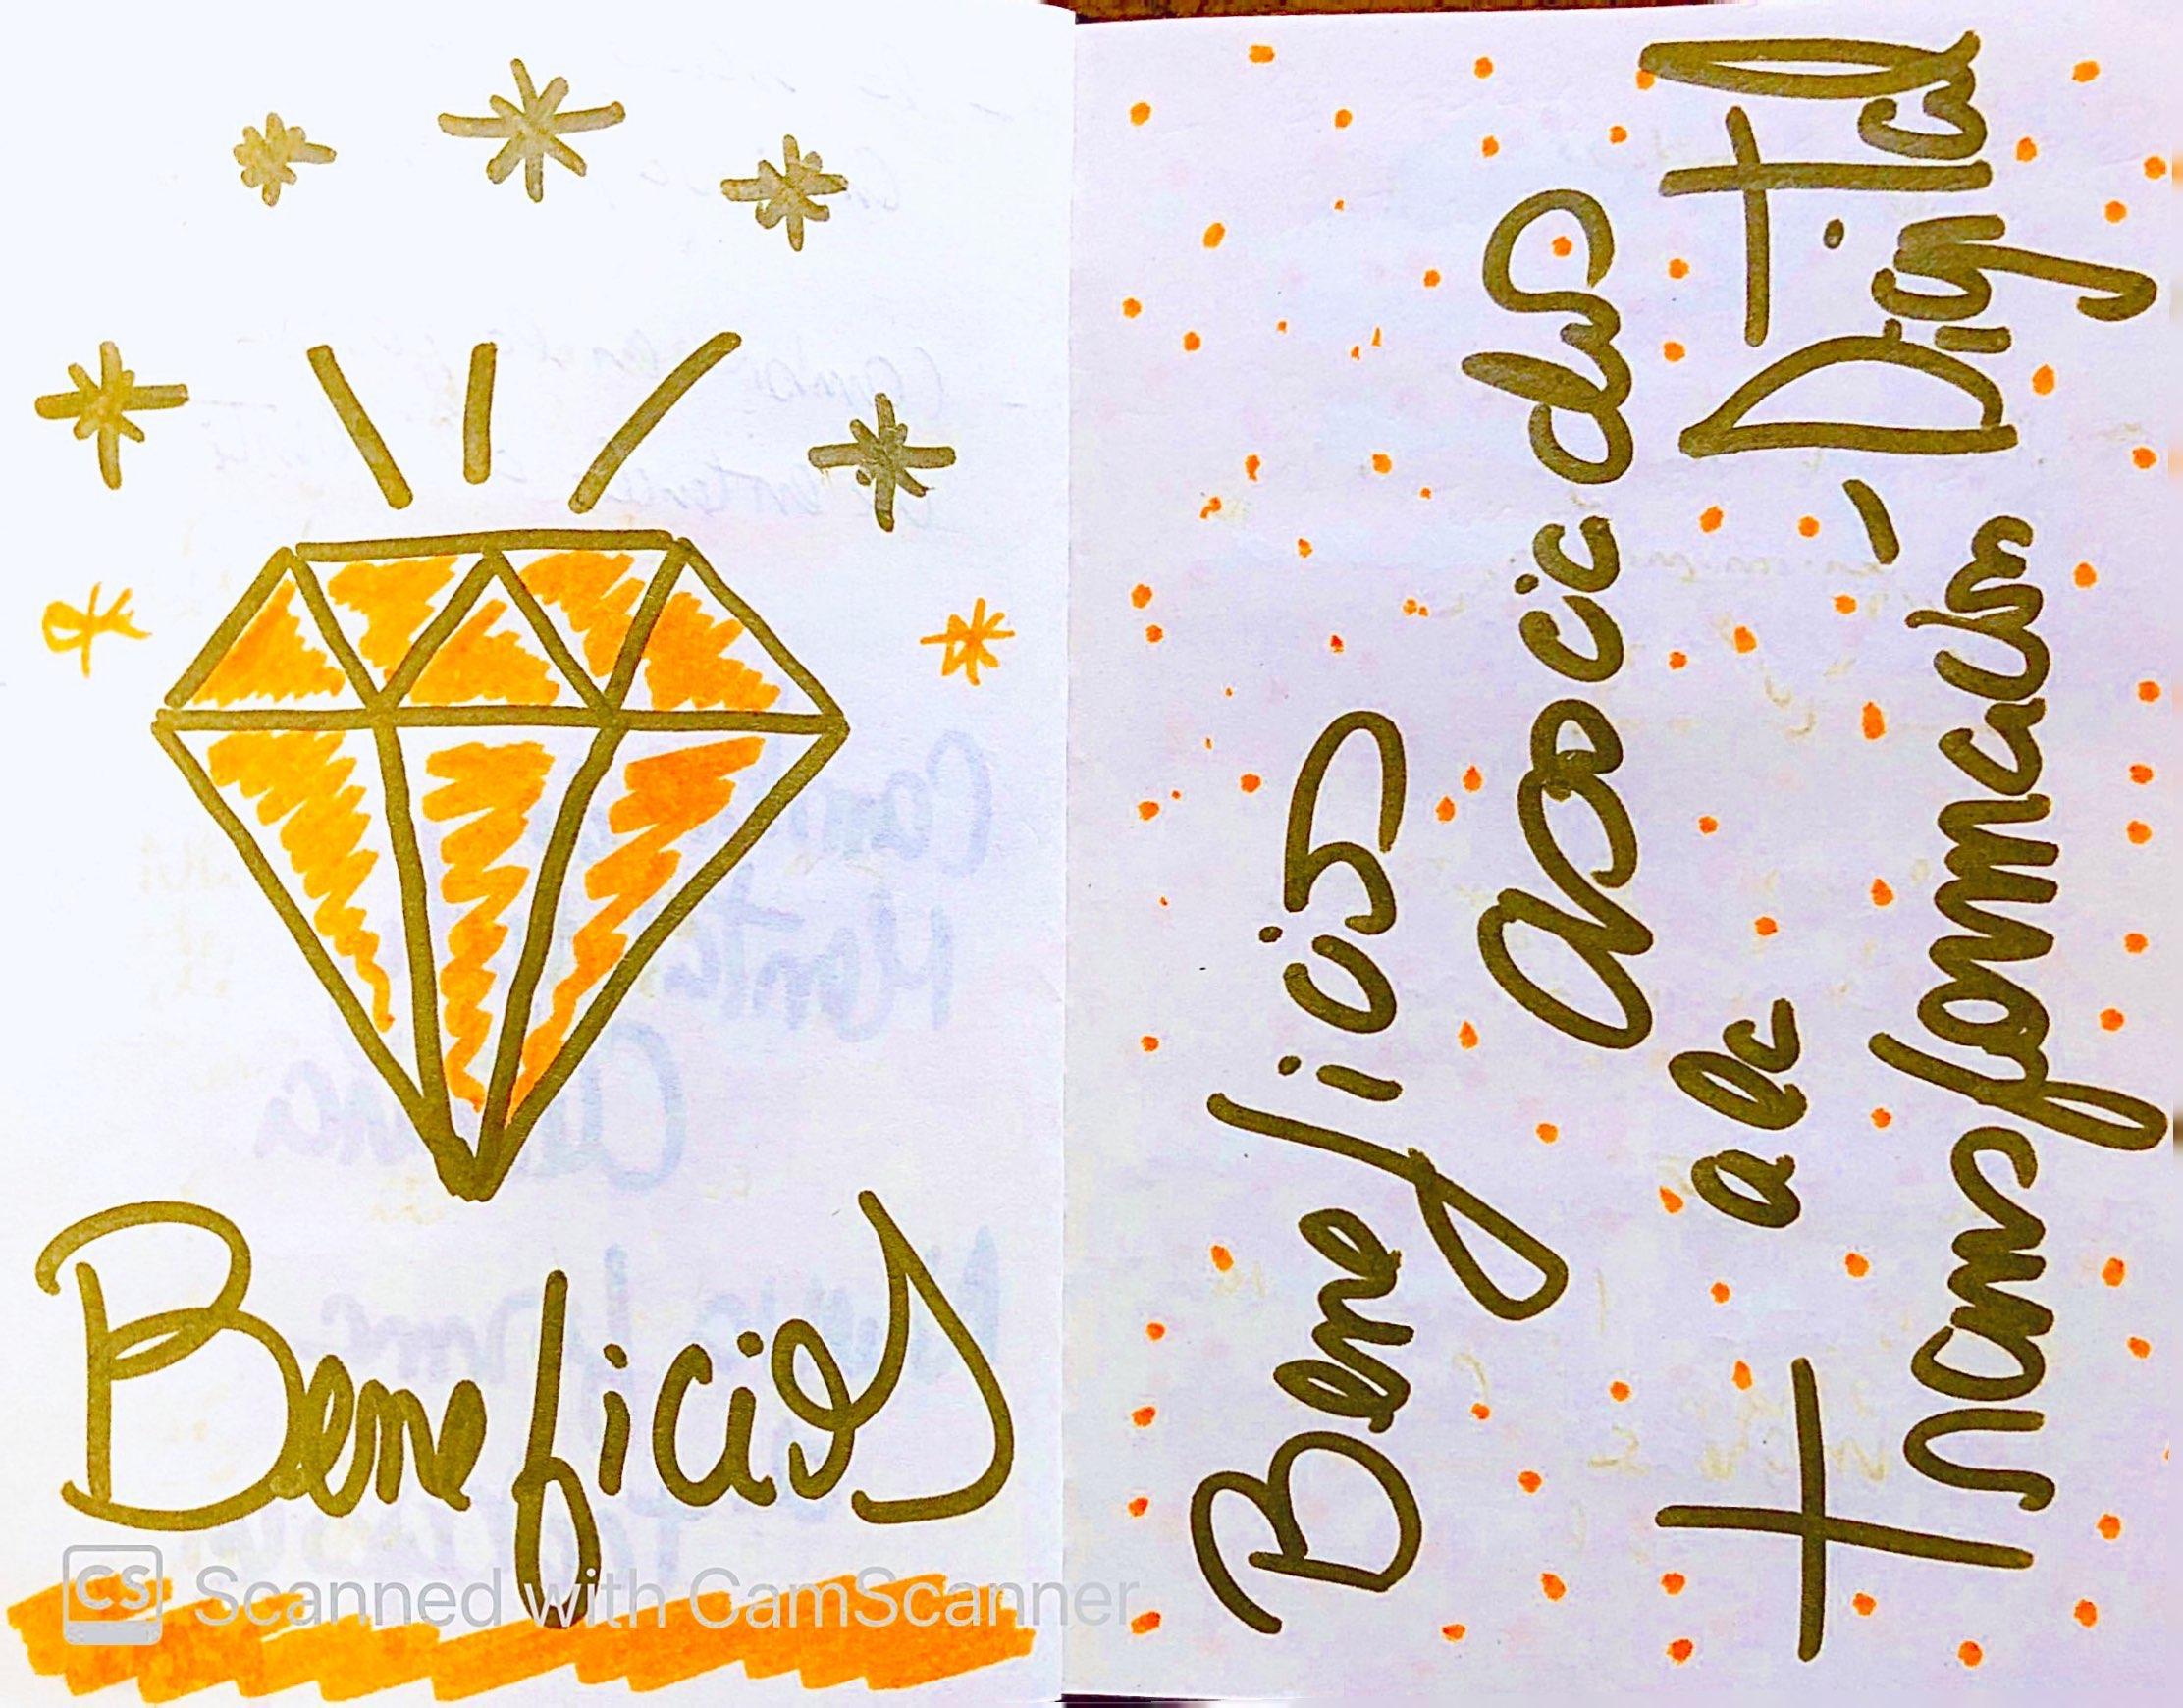 Beneficios
Scanned with CamScanner
Beneficios
Asociados
a la
transformación
Digital